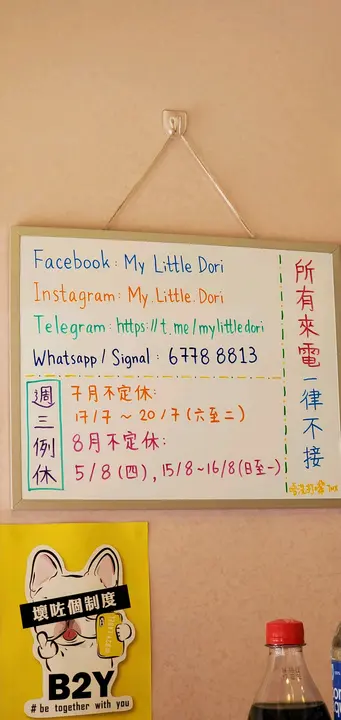 Facebook: My Little Dori
Instagram: My.Little.Dori
Telegram: https://t.me/mylittledori
Whatsapp / Signal : 6778 8813
所有來電一律不接
週三例休
7月不定休:
17/7 ~ 20/7 (六至二)
8月不定休:
5/8 (四), 15/8~16/8 (日至一)
壞咗個制度
B2Y
# be together with you